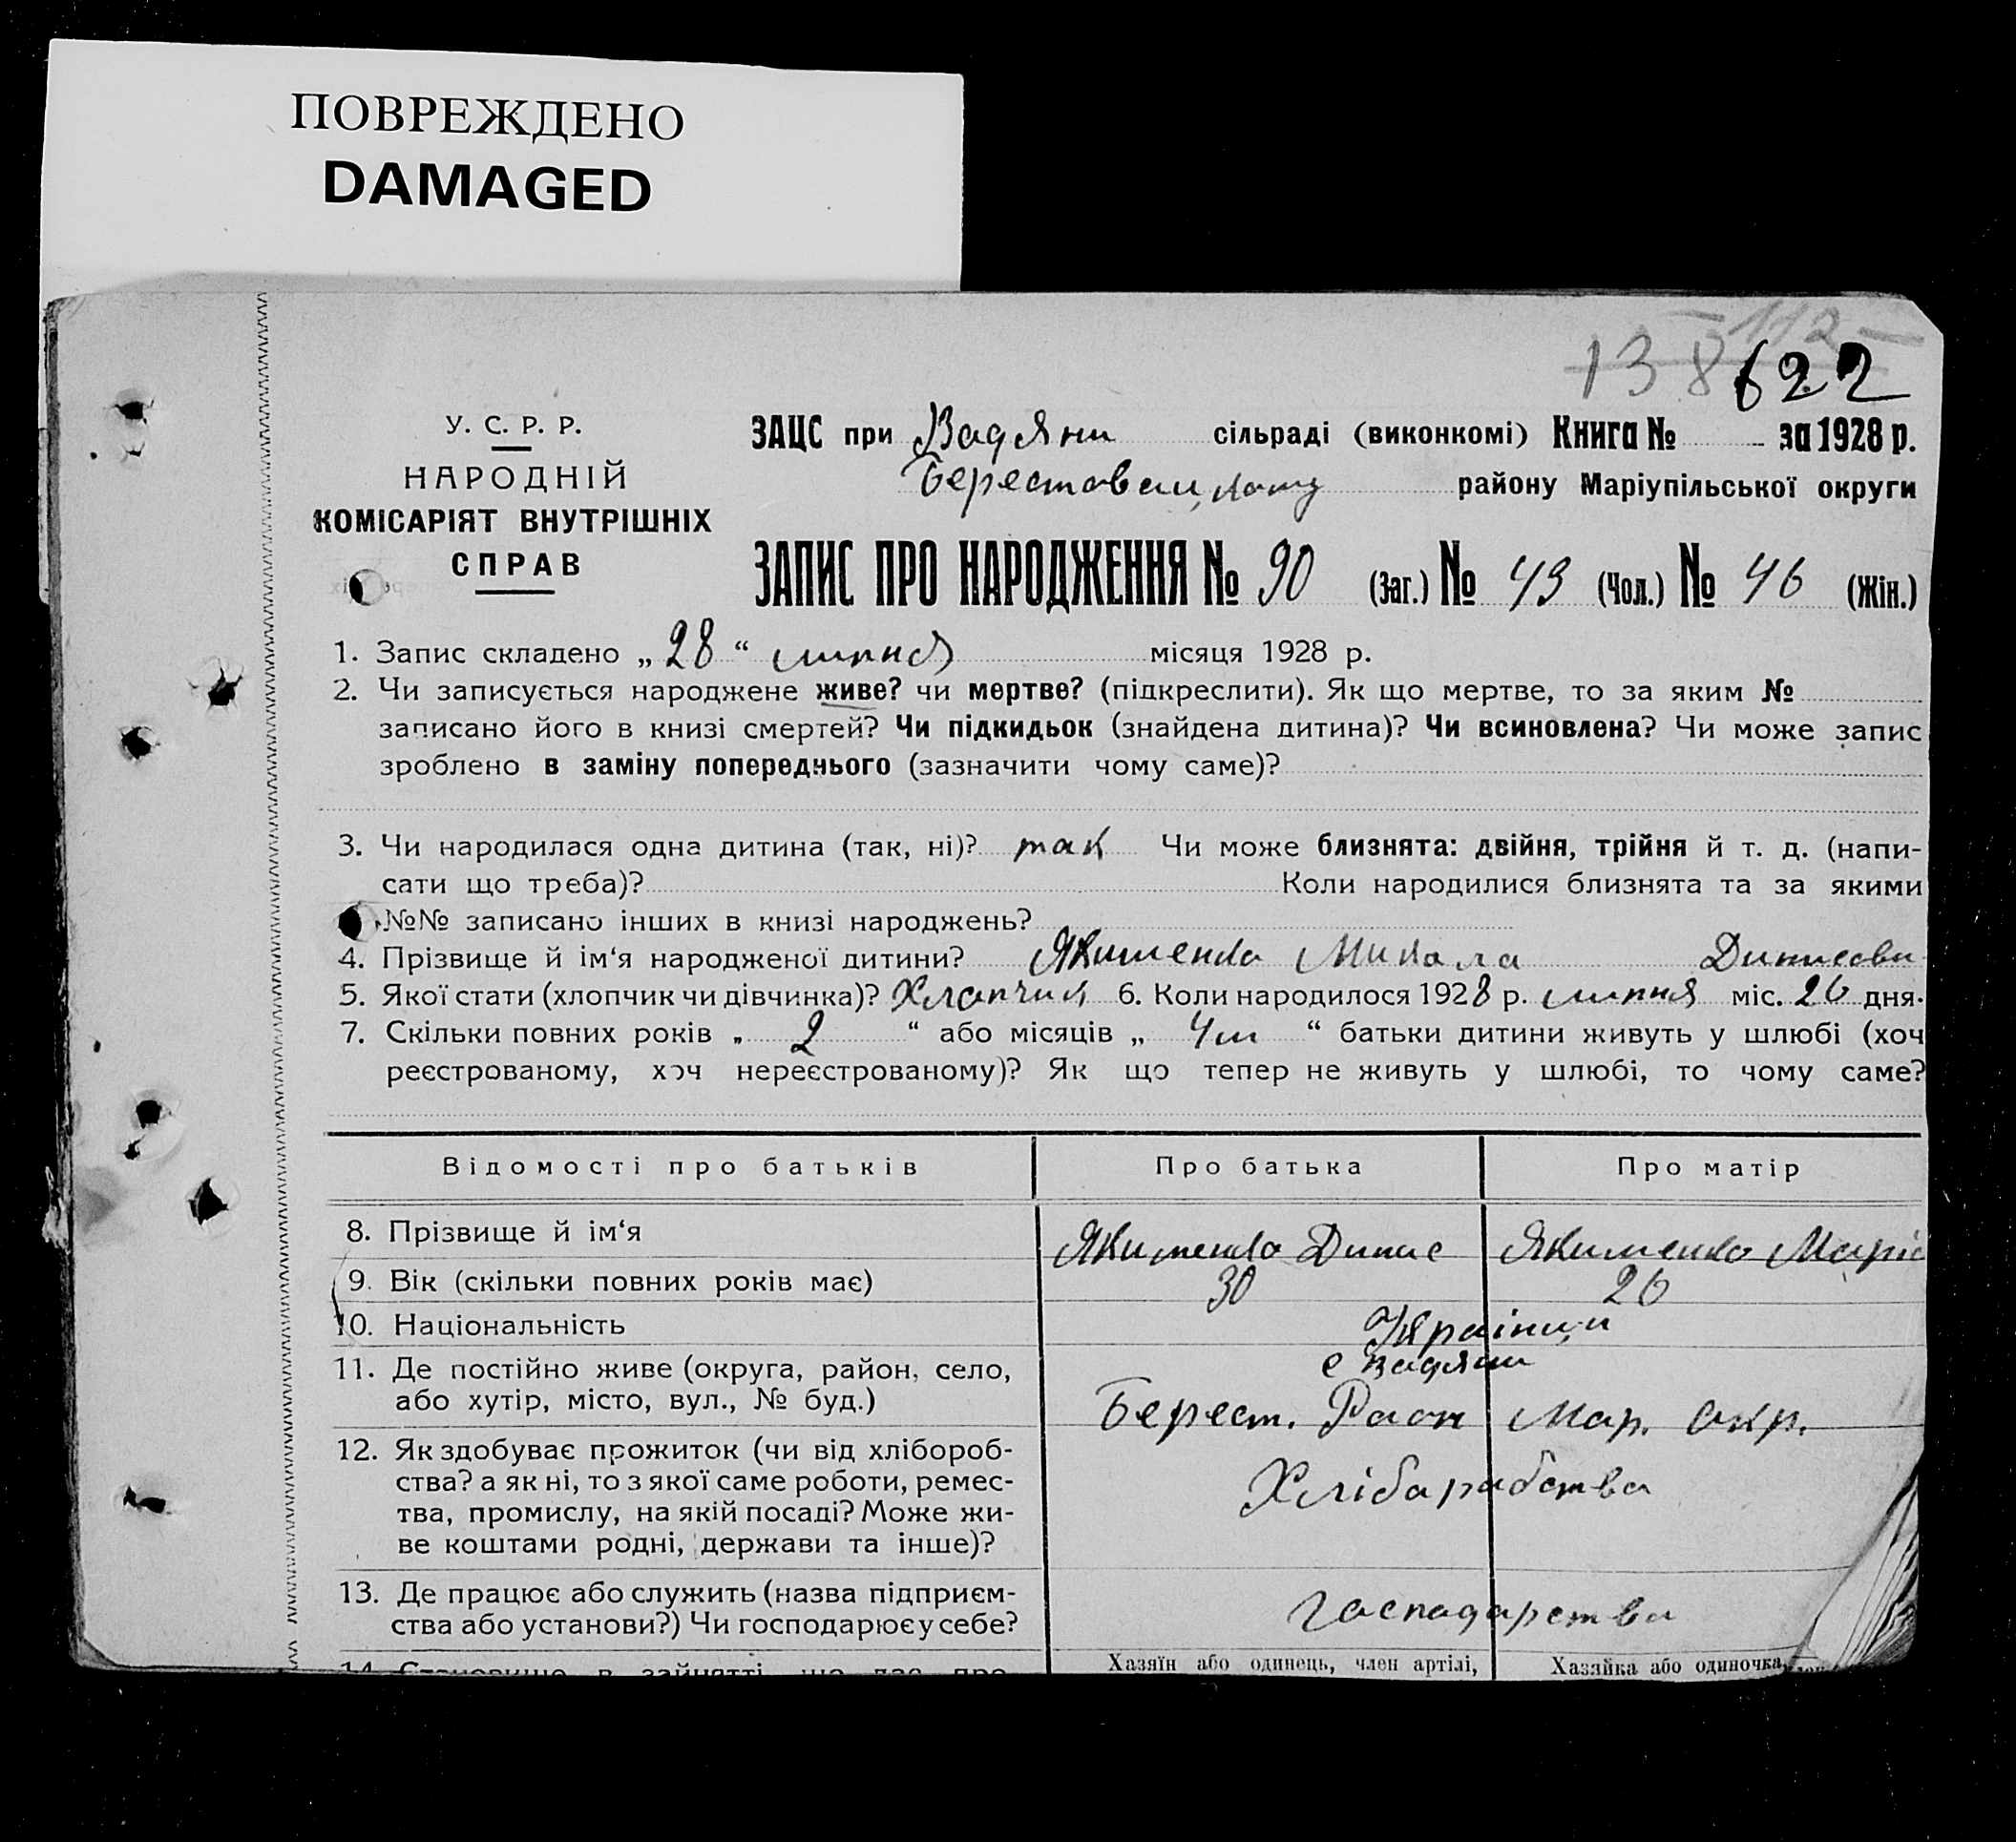 ПОВРЕЖДЕНО
DAMAGED
112
138 622
У. С. Р. Р.
НАРОДНІЙ
КОМІСАРІЯТ ВНУТРІШНІХ
СПРАВ
ЗАЦС при Вадяни сільраді (виконкомі) Книга № за 1928 р.
району Маріупільської округи
ЗАПИС ПРО НАРОДЖЕННЯ № 90 (Заг.) № 43 (Чол.) № 46 (Жін.)
1. Запис складено „28“ липня місяця 1928 р.
2. Чи записується народжене живе? чи мертве? (підкреслити). Як що мертве, то за яким №
записано його в книзі смертей? Чи підкидьок (знайдена дитина)? Чи всиновлена? Чи може запис
зроблено в заміну попереднього (зазначити чому саме)?
3. Чи народилася одна дитина (так, ні)? так Чи може близнята: двійня, трійня й т. д. (напи-
сати що треба)? Коли народилися близнята та за якими
№№ записано інших в книзі народжень?
4. Прізвище й ім‘я народженої дитини? Якименко Микола Динисови
5. Якої стати (хлопчик чи дівчинка)? Хлапчик 6. Коли народилося 1928 р. липня міс. 26 дня.
7. Скільки повних років „ 2 “ або місяців „ 4м “ батьки дитини живуть у шлюбі (хоч
реєстрованому, хоч нереєстрованому)? Як що тепер не живуть у шлюбі, то чому саме?
Відомості про батьків Про батька Про матір
8. Прізвище й ім‘я Якименко Динис Якименко Марія
9. Вік (скільки повних років має) 30 26
10. Національність Українци
11. Де постійно живе (округа, район, село, с Вадяни
або хутір, місто, вул., № буд.) Берест. Раон Мар. окр.
12. Як здобуває прожиток (чи від хлібороб-
ства? а як ні, то з якої саме роботи, ремес- Хлібарабства
тва, промислу, на якій посаді? Може жи-
ве коштами родні, держави та інше)?
13. Де працює або служить (назва підприєм- Гаспадарства
ства або установи?) Чи господарює у себе?
14. Становище в зайнятті, що дає про- Хазяїн або одинець, член артілі, Хазяйка або одиночка,